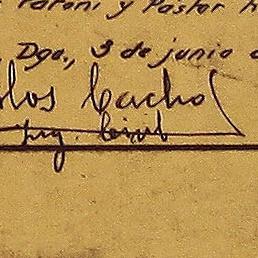 y Pastor h
, Dgo., 3 de junio d
los Cacho
Ing. Civil